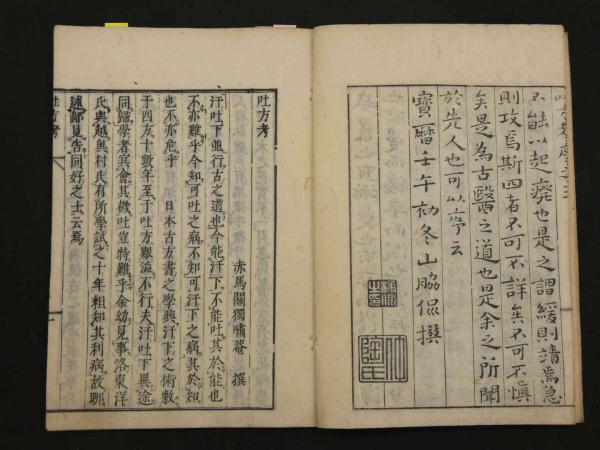 不能以起癈也是之謂緩則請焉急
則攻焉斯四者不可不詳矣不可不慎
矣是為古醫之道也是余之所聞
於先人也可以序云
寶曆壬午初冬山脇侃撰
吐方考
赤馬關獨嘯菴 撰
汗吐下並行古之道也今能汗下不能吐其於能也
不亦難乎今知可吐之病不知可汗下之病其於知
也不亦危乎 日本古方書之學興汗下之術敷
于四方十數年至于吐方艱澁不行夫汗吐下異途
同歸學者寘會其機吐豈特難乎余幼見事洛東洋
氏與越奧村氏有所學試之十年粗知其利病故聊
述鄙見告同好之士云焉
吐方考